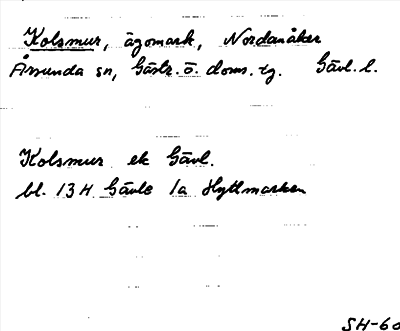 Kolsmur, ägomark, Nordanåker
Årsunda sn, Gästr. ö. doms. tg. Gävl. l.
Kolsmur ek Gävl.
bl. 13 H Gävle 1a Hyttmarken
SH-60